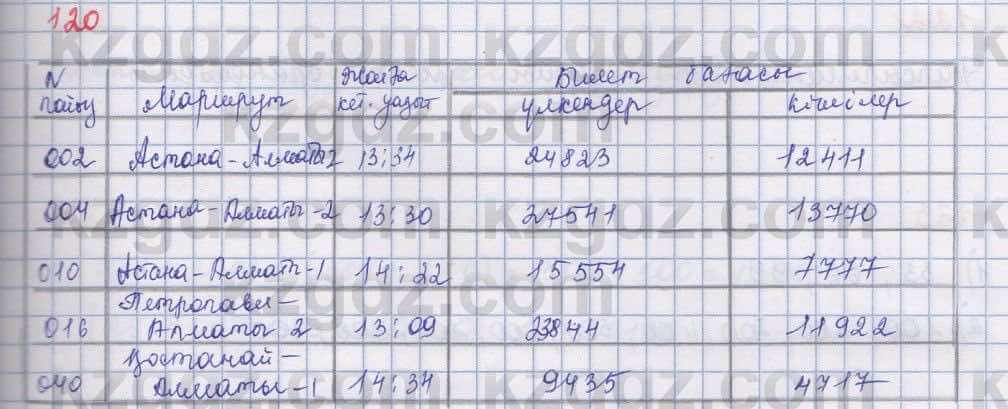 120
N пойыз Маршрут Жолға кет. уақыт Билет бағасы
үлкендер кішілер
002 Астана-Алматы 2 13:34 24823 12411
004 Астана-Алматы-2 13:30 27541 13770
010 Астана-Алматы-1 14:22 15554 7777
Петропавл-
016 Алматы 2 13:09 23844 11922
Қостанай-
040 Алматы-1 14:34 9435 4717
kzgdz.com